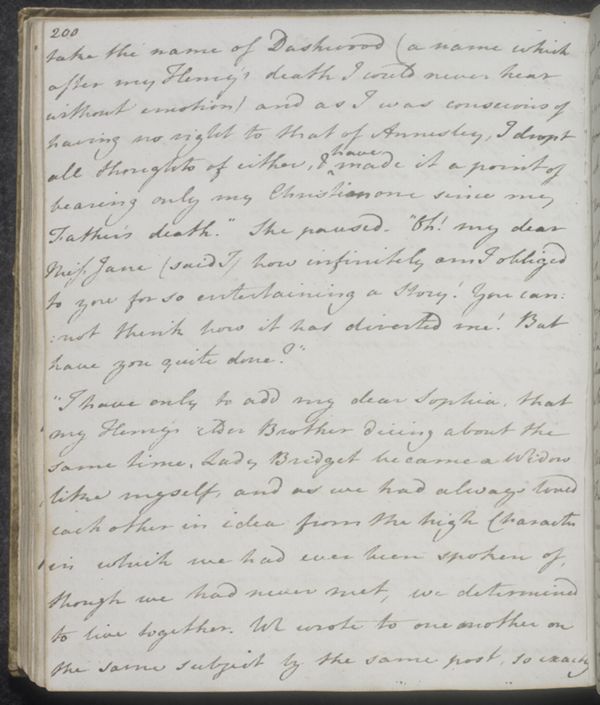 200
take the name of Dashwood (a name which
after my Henry's death I could never hear
without emotion) and as I was conscious of
having no right to that of Annesley, I dropt
all thoughts of either, & have made it a point of
bearing only my Christian one since my
Father's death." She paused. "Oh! my dear
Miss Jane (said I) how infinitely am I obliged
to you for so entertaining a Story! You can:
:not think how it has diverted me! But
have you quite done?"
"I have only to add my dear Sophia, that
my Henry's elder Brother dieing about the
same time, Lady Bridget became a Widow
like myself, and as we had always loved
each other in idea from the high Character
in which we had ever been spoken of,
though we had never met, we determined
to live together. We wrote to one another on
the same subject by the same post, so exactly